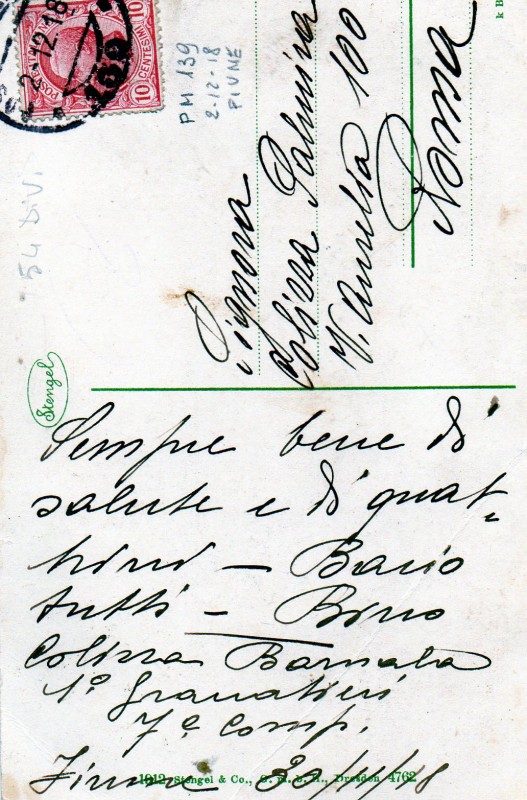 2·12·18
POSTE ITALIANE
10 CENTESIMI 10
PM 139
2-12-18
FIUME
54 DIV.
Signora
Colizza Palmira
V. Aurelia 100
Roma
Stengel
Sempre bene di
salute e di quat-
trini – Bacio
tutti –
Colizza Barnaba
1º Granatieri
7ª Comp.
Fiume 30/11/18
1912 Stengel & Co., G. m. b. H., Dresden 4762